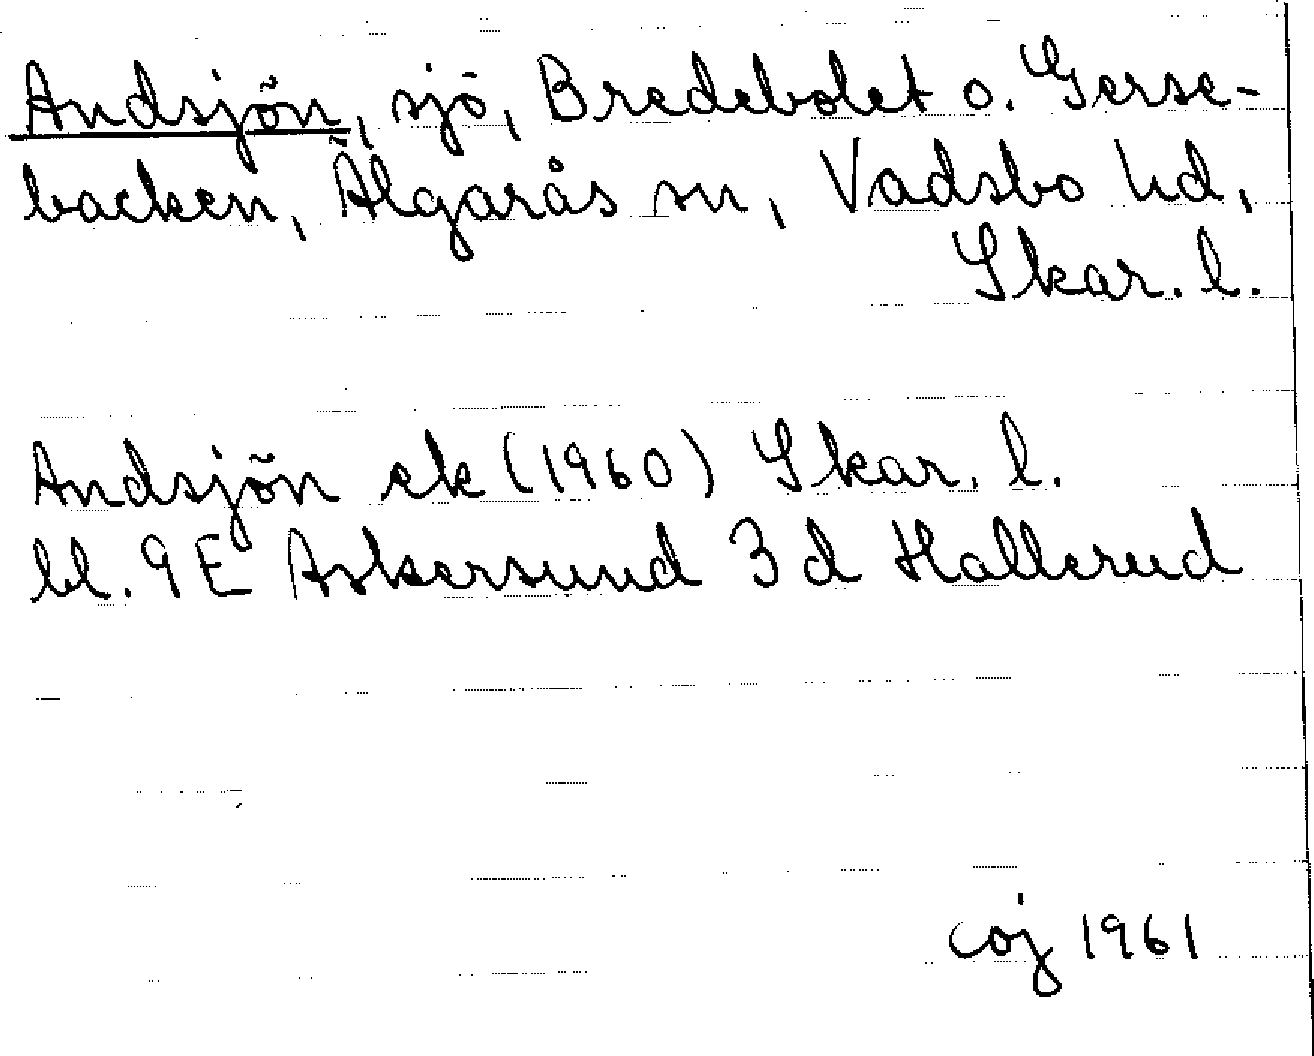 Andsjön, sjö, Bredebolet o. Gerse-
backen, Älgarås sn, Vadsbo hd,
Skar. l.
Andsjön ek (1960) Skar. l.
bl. 9E Askersund 3d Hallerud
coj 1961